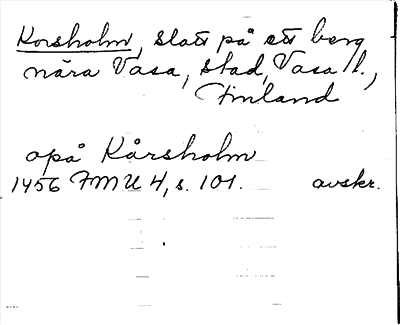 Korsholm, slott på ett berg
nära Vasa, stad, Vasa l.,
Finland
opå Kårsholm
1456 FMU 4, s. 101. avskr.